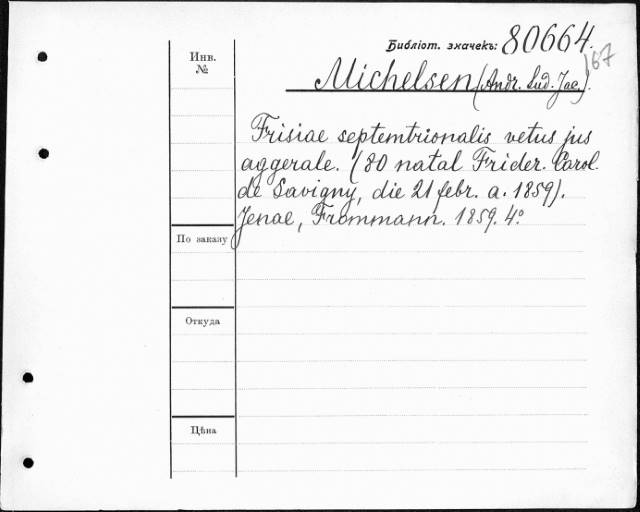 Библіот. значекъ: 80664.
167
Инв.
№
Michelsen (Andr. Lud. Jac.).
Frisiae septemtrionalis vetus jus
aggerale. (80 natal Frider. Carol.
de Savigny, die 21 febr. a. 1859).
Jenae, Frommann. 1859. 4º
По заказу
Откуда
Цѣна